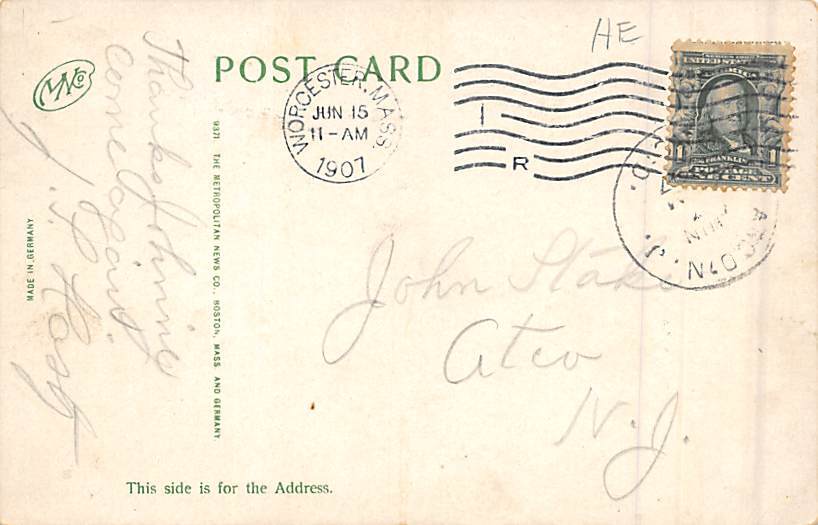 HE
POST CARD
MNCo
WORCESTER, MASS.
JUN 15
11-AM
1907
I
R
UNITED STATES
1 FRANKLIN 1
POSTAGE
ONE CENT
CAMDEN, N.J.
JUN
R.D.
Thanks Johnnie
come again
J. P. H
9371 THE METROPOLITAN NEWS CO., BOSTON, MASS. AND GERMANY.
MADE IN GERMANY
John Stake
Atco
N.J.
This side is for the Address.